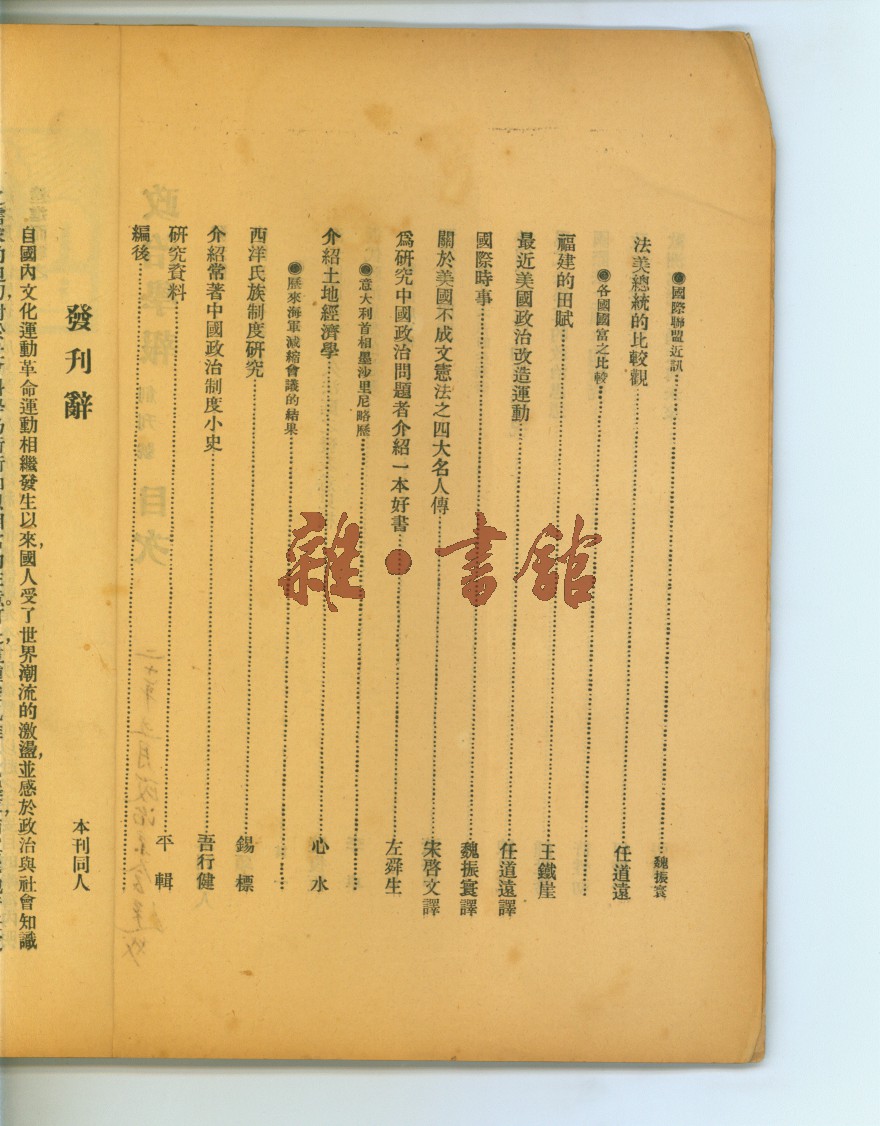 ●國際聯盟近訊……魏振寰
法美總統的比較觀……任道遠
●各國國富之比較……
福建的田賦……王鐵崖
最近美國政治改造運動……任道遠譯
國際時事……魏振寰譯
關於美國不成文憲法之四大名人傳……宋啓文譯
爲研究中國政治問題者介紹一本好書……左舜生
●意大利首相墨沙里尼略歷……
介紹土地經濟學……心水
●歷來海軍減縮會議的結果……
西洋氏族制度研究……錫標
介紹常著中國政治制度小史……吾行健
研究資料……平輯
編後……
發刊辭
本刊同人
自國內文化運動革命運動相繼發生以來，國人受了世界潮流的激盪，並感於政治與社會知識
雜·書館